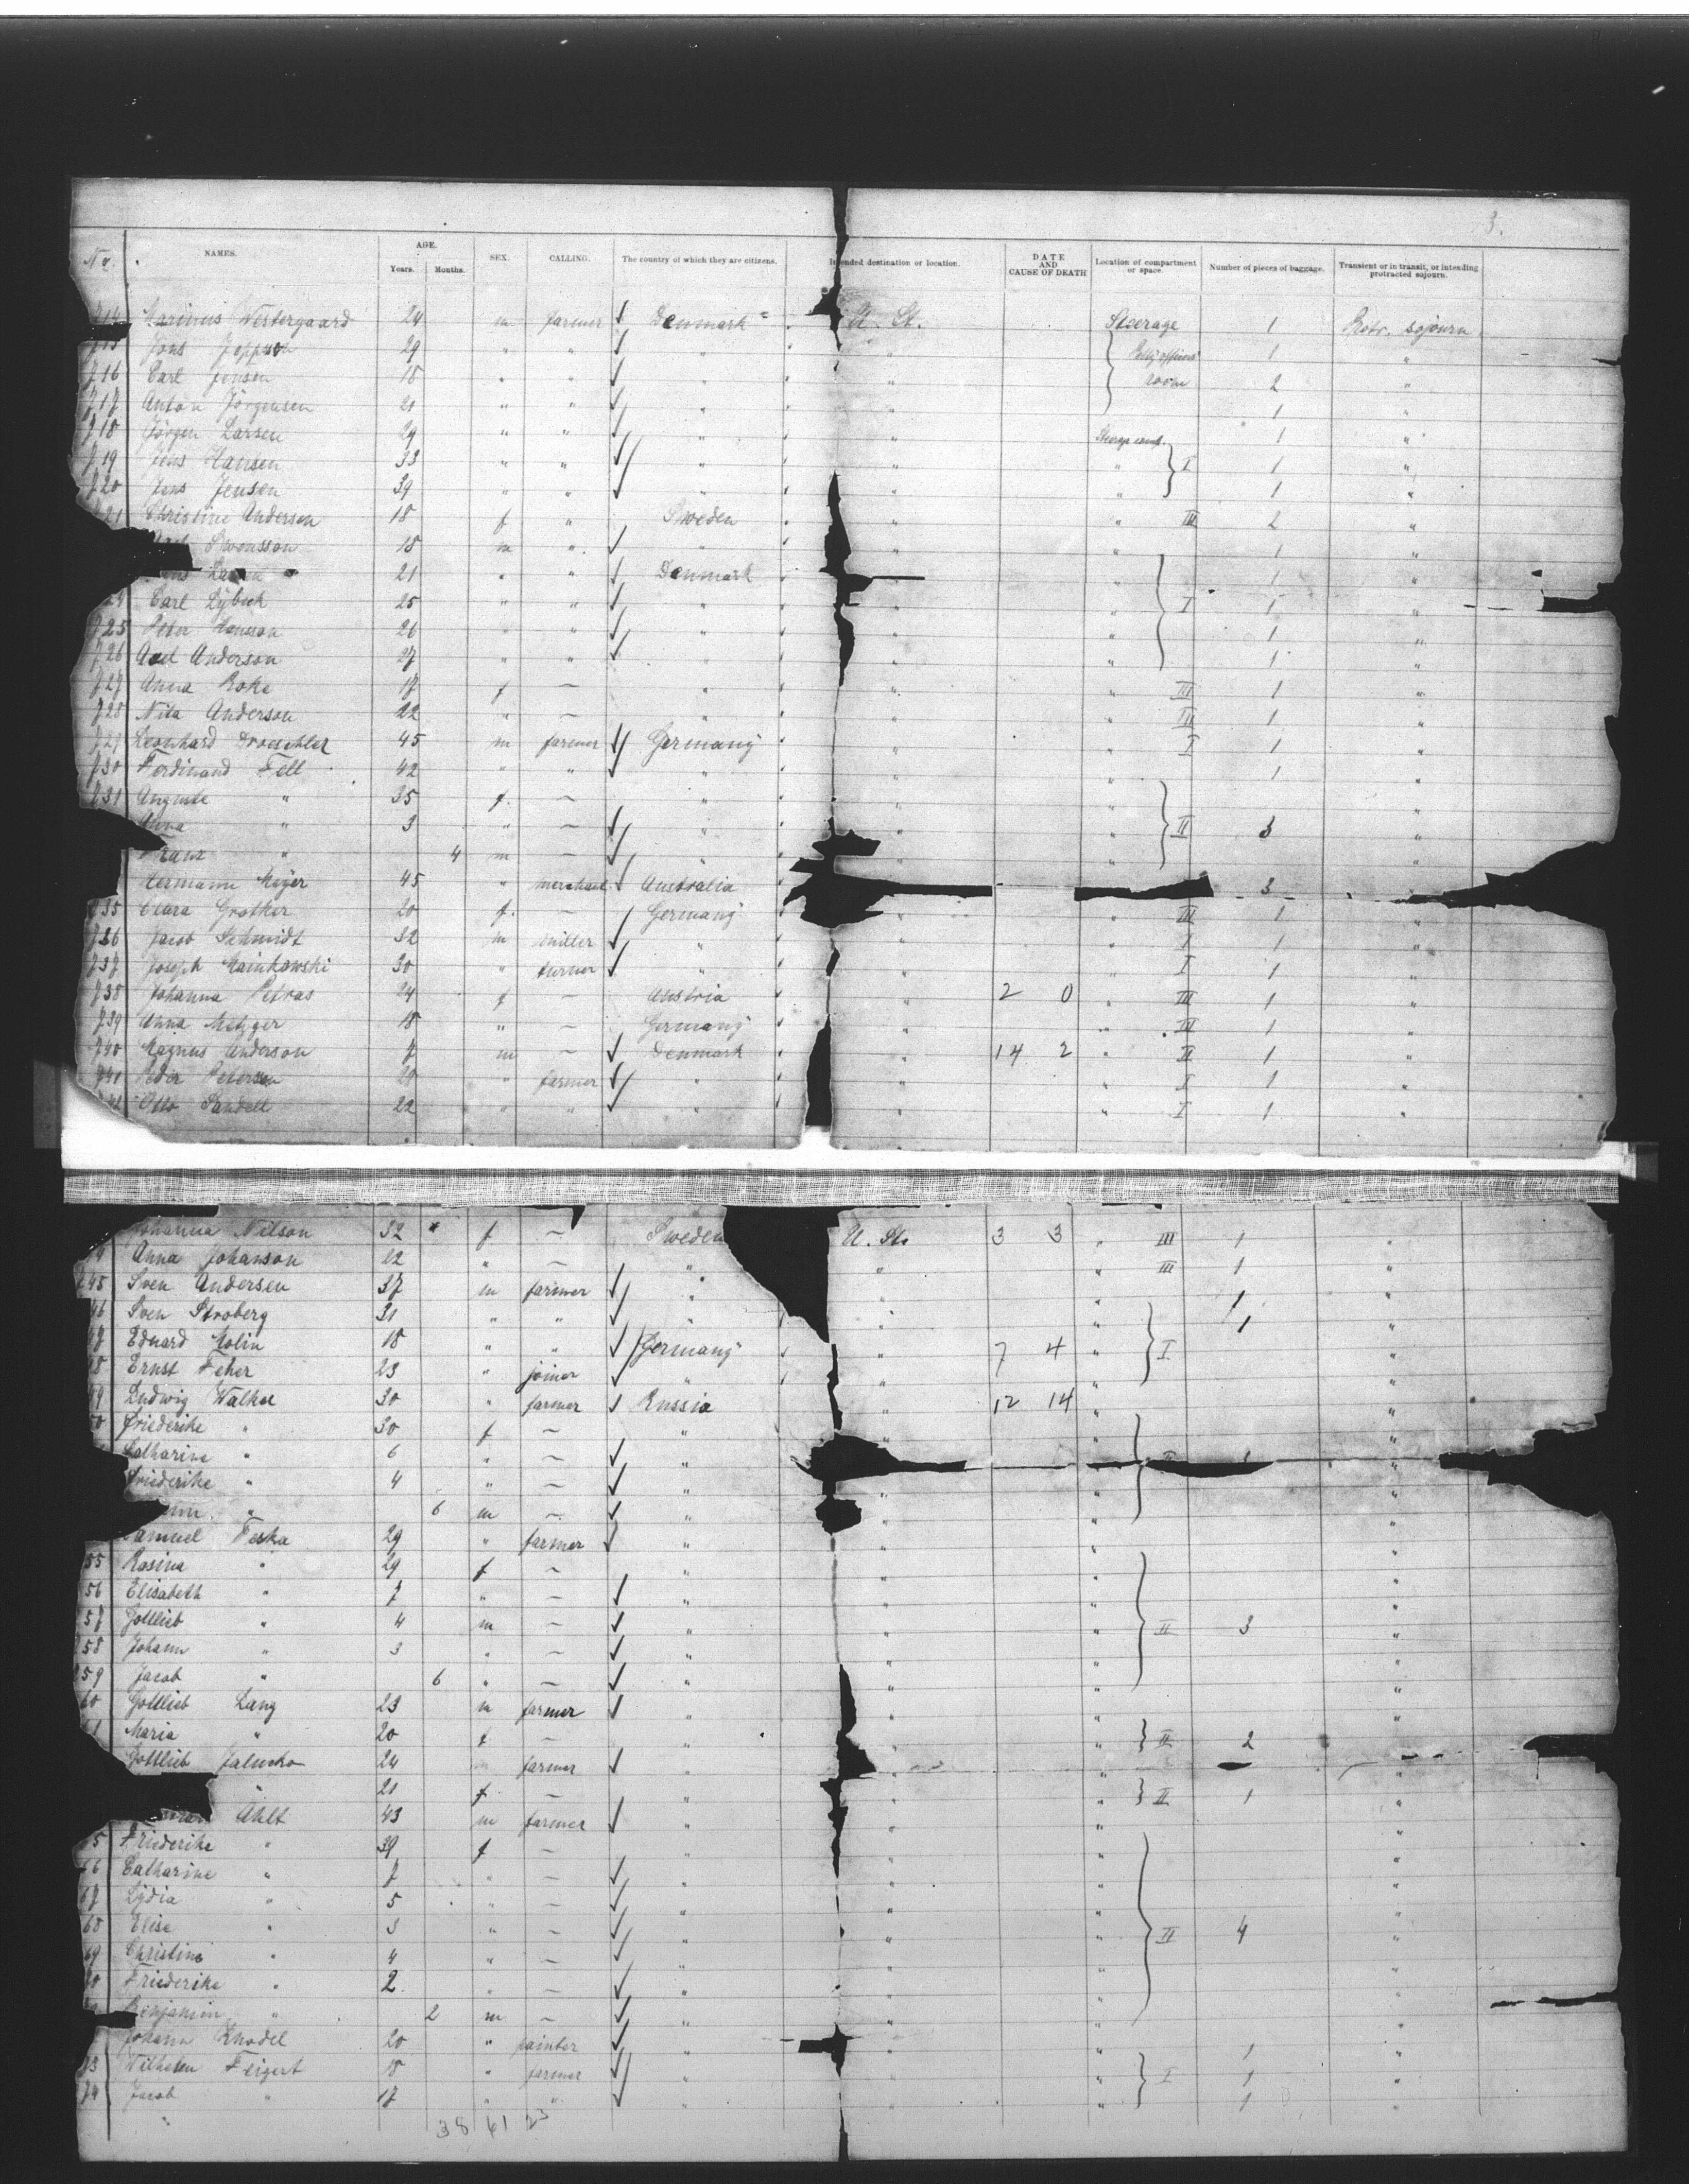 3.
No. NAMES. AGE. Years. Months. SEX. CALLING. The country of which they are citizens. Intended destination or location. DATE AND CAUSE OF DEATH Location of compartment or space. Number of pieces of baggage. Transient or in transit, or intending protracted sojourn.
714 Marinus Westergaard 24 m farmer ✓ Denmark U. St. Steerage 1 Protr. sojourn
715 Jons Jeppson 29 " " ✓ " " 1 "
716 Carl Jensen 18 " " ✓ " " room 2 "
717 Anton Jörgensen 21 " " ✓ " " 1 "
718 Jörgen Larsen 29 " " ✓ " " 1 "
719 Jens Hansen 33 " " ✓ " " " I 1 "
720 Jens Jensen 39 " " ✓ " " " 1 "
721 Christine Anderson 18 f " Sweden " " III 2 "
Swensson 18 m " ✓ " " " 1 "
21 " " ✓ Denmark " " 1 "
24 Carl Lybeck 25 " " ✓ " " " I 1 "
725 Peter Hansson 26 " " ✓ " " " 1 "
726 Axel Anderson 27 " " ✓ " " " 1 "
727 Anna Roke 17 f — " " " III 1 "
728 Nila Anderson 22 " — " " " III 1 "
729 Leonhard Droeschler 45 m farmer ✓ Germany " " I 1 "
730 Ferdinand Fell 42 " " ✓ " " " 1 "
731 Auguste " 35 f. — " " " "
Anna " 3 " — ✓ " " " II 3 "
Franz " 4 m — ✓ " " "
Hermann Meyer 45 " merchant ✓ Australia 3
735 Clara Grotker 20 f. — Germany " " III 1 "
736 Jacob Schmidt 32 m miller ✓ " " " I 1 "
737 Joseph Mainkowski 30 " turner ✓ " " " I 1 "
738 Johanna Petras 24 f — Austria " 2 0 " III 1 "
739 Anna Metzger 18 " — Germany " " III 1 "
740 Magnus Anderson 7 m — ✓ Denmark " 14 2 " II 1 "
741 Peder Petersen 28 " farmer ✓ " " " I 1 "
42 Otto Sandell 22 " " ✓ " " " I 1 "
Johanna Nilson 32 f — Sweden U. St. 3 3 " III 1 "
44 Anna Johanson 22 " — " " " III 1 "
745 Sven Andersen 37 m farmer ✓ " " " 1 "
46 Sven Stroberg 31 " " ✓ " " " 1 "
47 Eduard Molin 18 " " ✓ Germany " 7 4 " I "
48 Ernst Feher 23 " joiner ✓ " " " "
49 Ludwig Walker 30 " farmer ✓ Russia " 12 14 " "
50 Friederike " 30 f — " " " "
Catharine " 6 " — ✓ " " II "
Friederike " 4 " — ✓ " " "
" 6 m — ✓ " " " "
Samuel Feska 29 " farmer ✓ " " " "
55 Rosina " 29 f — " " " "
56 Elisabeth " 7 " — ✓ " " " "
57 Gottlieb " 4 m — ✓ " " " II 3 "
58 Johann " 3 " — ✓ " " " "
759 Jacob " 6 " — ✓ " " " "
60 Gottlieb Lang 23 m farmer ✓ " " " "
61 Maria " 20 f — " " " II 2 "
Gottlieb Jalusko 24 m farmer ✓ " " "
" 21 f — " " " II 1 "
Ahlt 43 m farmer ✓ " " " "
65 Friederike " 39 f — " " " "
66 Catharine " 7 " — ✓ " " " "
67 Lydia " 5 " — ✓ " " " "
68 Elise " 3 " — ✓ " " " II 4 "
69 Christine " 4 " — ✓ " " " "
70 Friederike " 2 " — ✓ " " " "
Benjamin " 2 m — ✓ " " "
Johann Knodel 20 " painter ✓ " " " 1 "
73 Wilhelm Feigert 18 " farmer ✓ " " " I 1 "
74 Jacob " 17 " " ✓ " " " 1 "
38 61 23